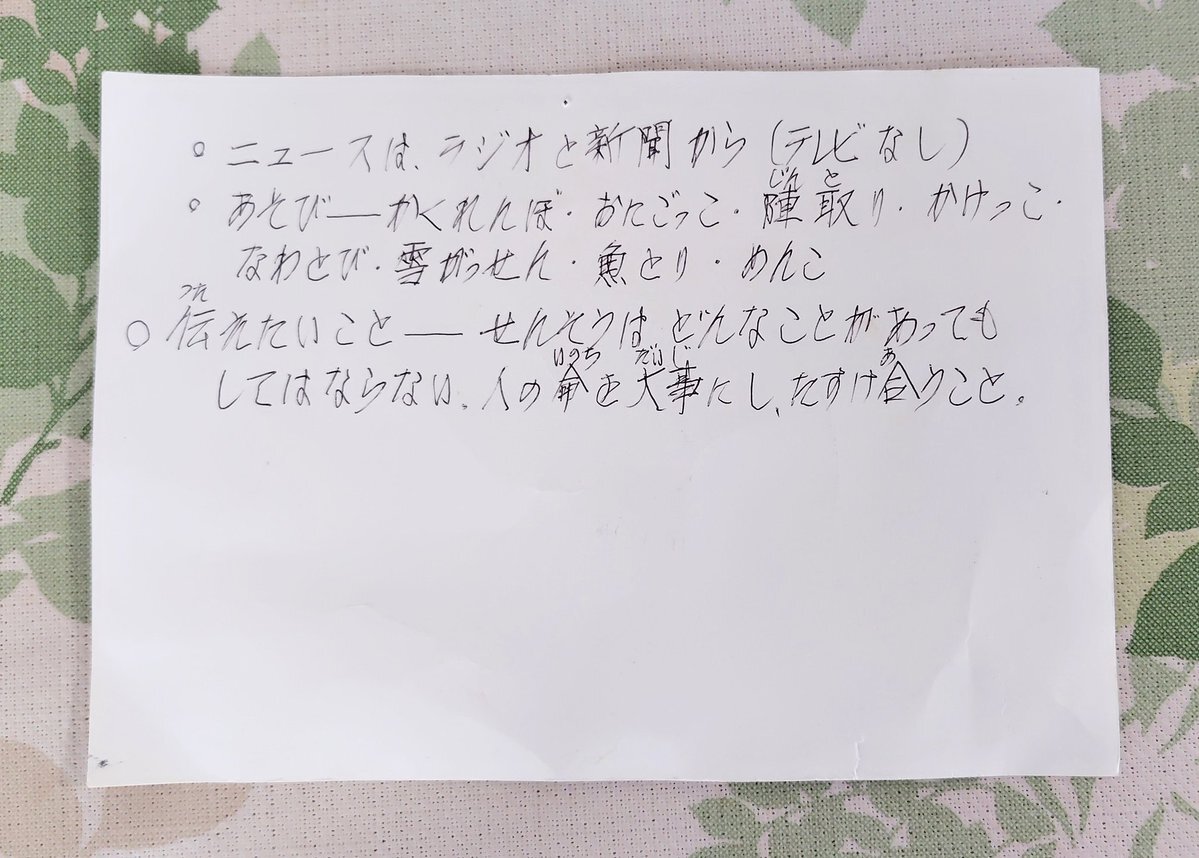 。ニュースは、ラジオと新聞から(テレビなし)
。あそび──かくれんぼ・おにごっこ・陣取り・かけっこ・
じんと
なわとび・雪がっせん・魚とり・めんこ
つた
○伝えたいこと──せんそうはどんなことがあっても
いのち だいじ あ
してはならない。人の命を大事にし、たすけ合うこと。